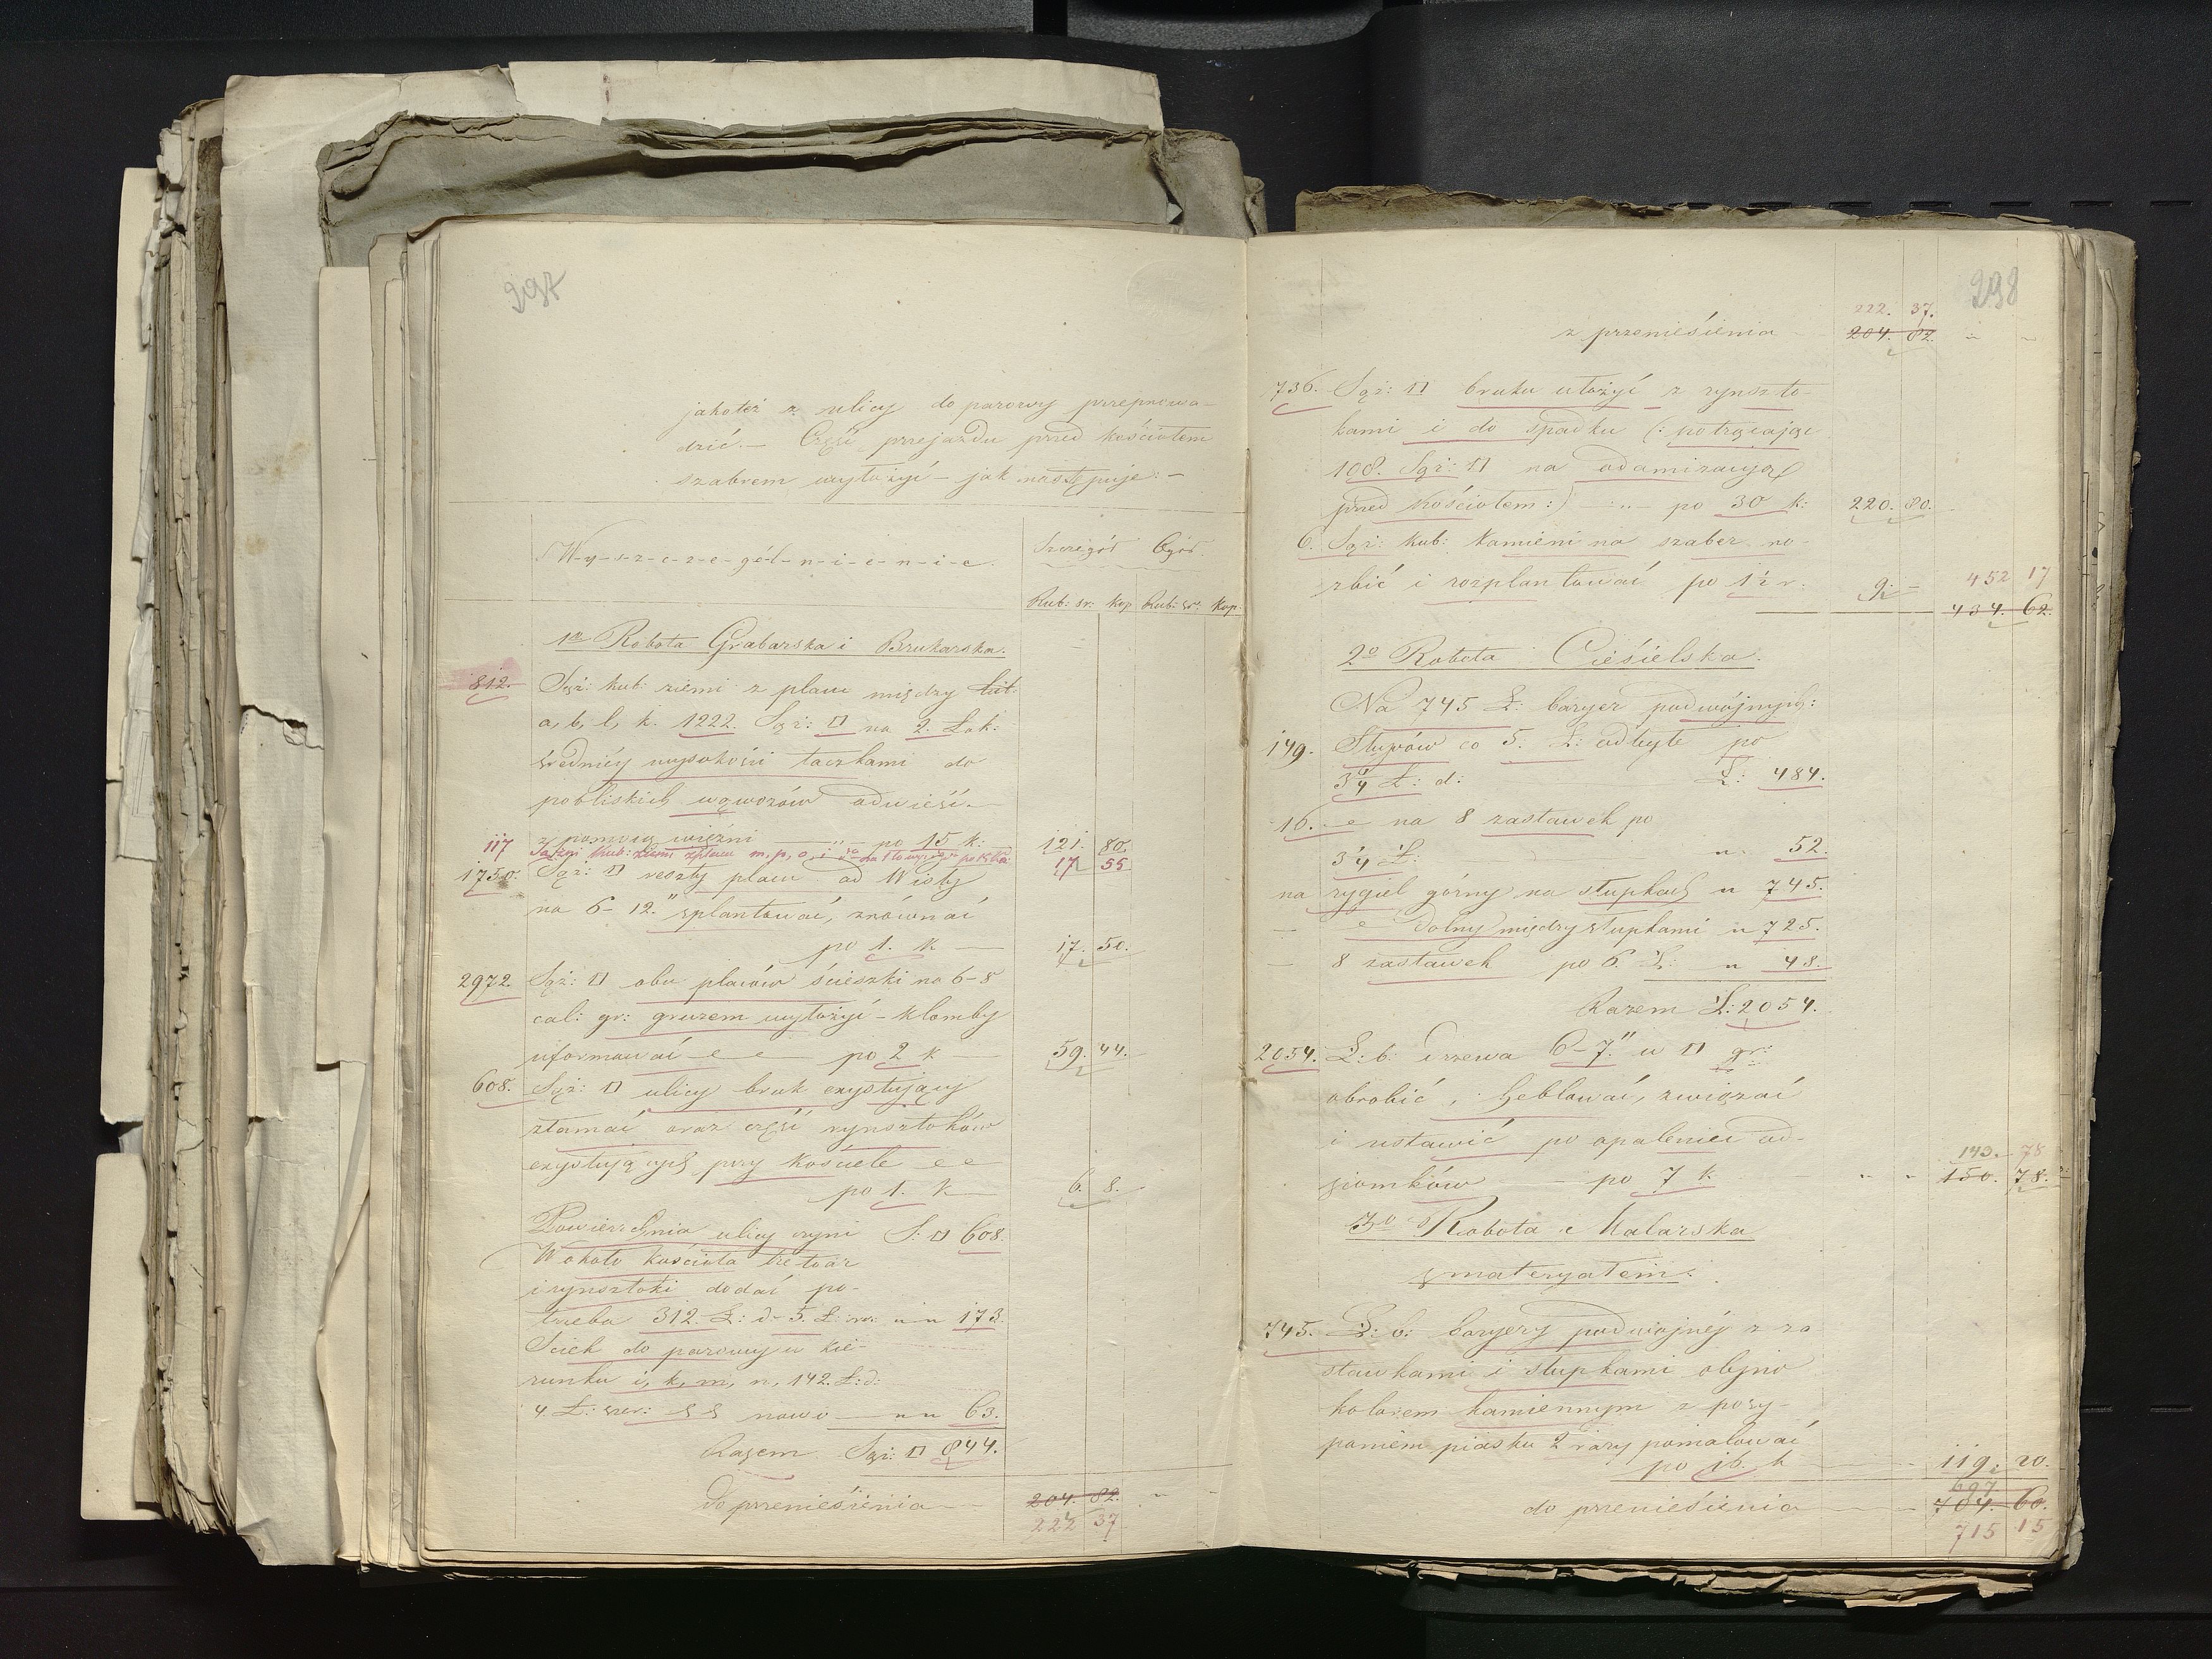 297
jakoteż z ulicy do parowy przeprowa-
dzić. — Część przejazdu przed kościołem
szabrem wyłożyć — jak następuje: —
W-y-s-z-c-z-e-gól-n-i-e-n-i-e.
Szczegół Ogół.
Rub: sr: Kop Rub: sr: Kop.
1o Robota Grabarska i Brukarska.
812. Sąż: kub: ziemi z placu między lit:
a, b, l, k. 1222. Sąż: □ na 2. Łok:
średniéj wysokości taczkami do
pobliskich wąwozów odwieść. —
z pomocą więźni — „ — po 15 k: 121. 80.
117 Sążni kub: ziemi z placu m, p, o, 17 55
1750. Sąż: □ reszty placu od Wisły
na 6-12." splantować, zrównać
po 1. k — 17. 50.
2972. Sąż: □ obu placów ścieszki na 6-8
cal: gr: gruzem wyłożyć - klomby
uformować — po 2 k — 59. 44.
608. Sąż: □ ulicy bruk exystujący
złamać oraz część rynsztoków
exystujących przy kościele
po 1. k — 6. 8.
Powierzchnia ulicy czyni S: □ 608.
W około kościoła tretoar
i rynsztoki dodać po-
trzeba 312. Ł: d: 5. Ł: sze: „ „ 173.
Sciek do parowy w kie-
runku i, k, m, n, 142. Ł: d:
4. Ł: szer: nowo — „ „ 63.
Razem Sąż: □ 844.
do przeniesienia — 204. 82. „ -
222 37
298
222. 37.
z przeniesienia 204. 82. „ „
736. Sąż: □ bruku ułożyć z rynszto-
kami i do spadku (: potrącając
108. Sąż: □ na
przed kościołem :) — „ — po 30 k: 220. 80.
6. Sąż: Kub: kamieni na szaber ro-
zbić i rozplantować po 1½ r. 9. — 452 17
434. 62.
2o Robota Cieśielska.
Na 745 Ł: baryer podwójnych:
149. Słupów co 5. Ł: odległe po
3¼ Ł: d: Ł: 484.
16. — na 8 zastawek po
3¼ Ł: „ 52.
na rygiel górny na słupkach „ 745.
— dolny między słupkami „ 725.
— 8 zastawek po 6. Ł: „ 48.
Razem Ł: 2054.
2054. Ł: b: drzewa 6-7." w □ gr:
obrobić, heblować, związać
i ustawić po opaleniu od-
ziomków — po 7 k „ „ 143. 78
150. 78.
3o Robota Malarska
z materyałem.
745. Ł: b: baryery podwójnéj z za
stawkami i słupkami olejno
kolorem kamiennym z posy-
paniem piasku 2 razy pomalować
po 16. k — 119. 20.
697
do przeniesienia — 704. 60.
715 15